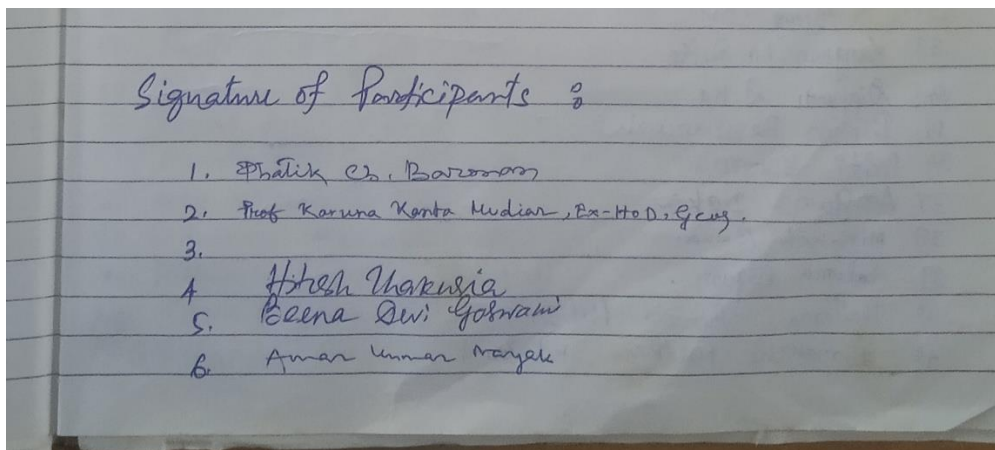 Signature of Participants :
1. Phatik Ch. Barman
2. Prof Karuna Kanta Mudiar, Ex-HoD, Geog.
3.
4 Hitesh Thakuria
5. Beena Devi Goswami
6. Amar Kumar Nayak